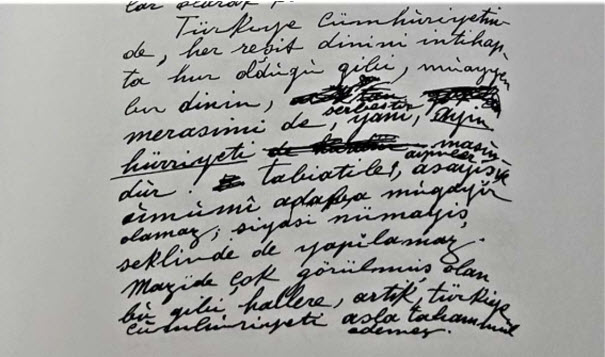 Türkiye Cümhüriyetin
de, her reşit dinini intihap
ta hur oldügü gibi, müayyen
bir dinin,
merasimi de serbestir, yani, âyin
hürriyeti masun
dür. tabiatile, âyinler asayiş ve
ümümî adaba mügayir
olamaz; siyasi nümayiş
şeklinde de yapilamaz.
Mazide çok görülmüş olan
bü gibi hallere, artik, türkiye
cümhüriyeti asla tahammül
edemez.